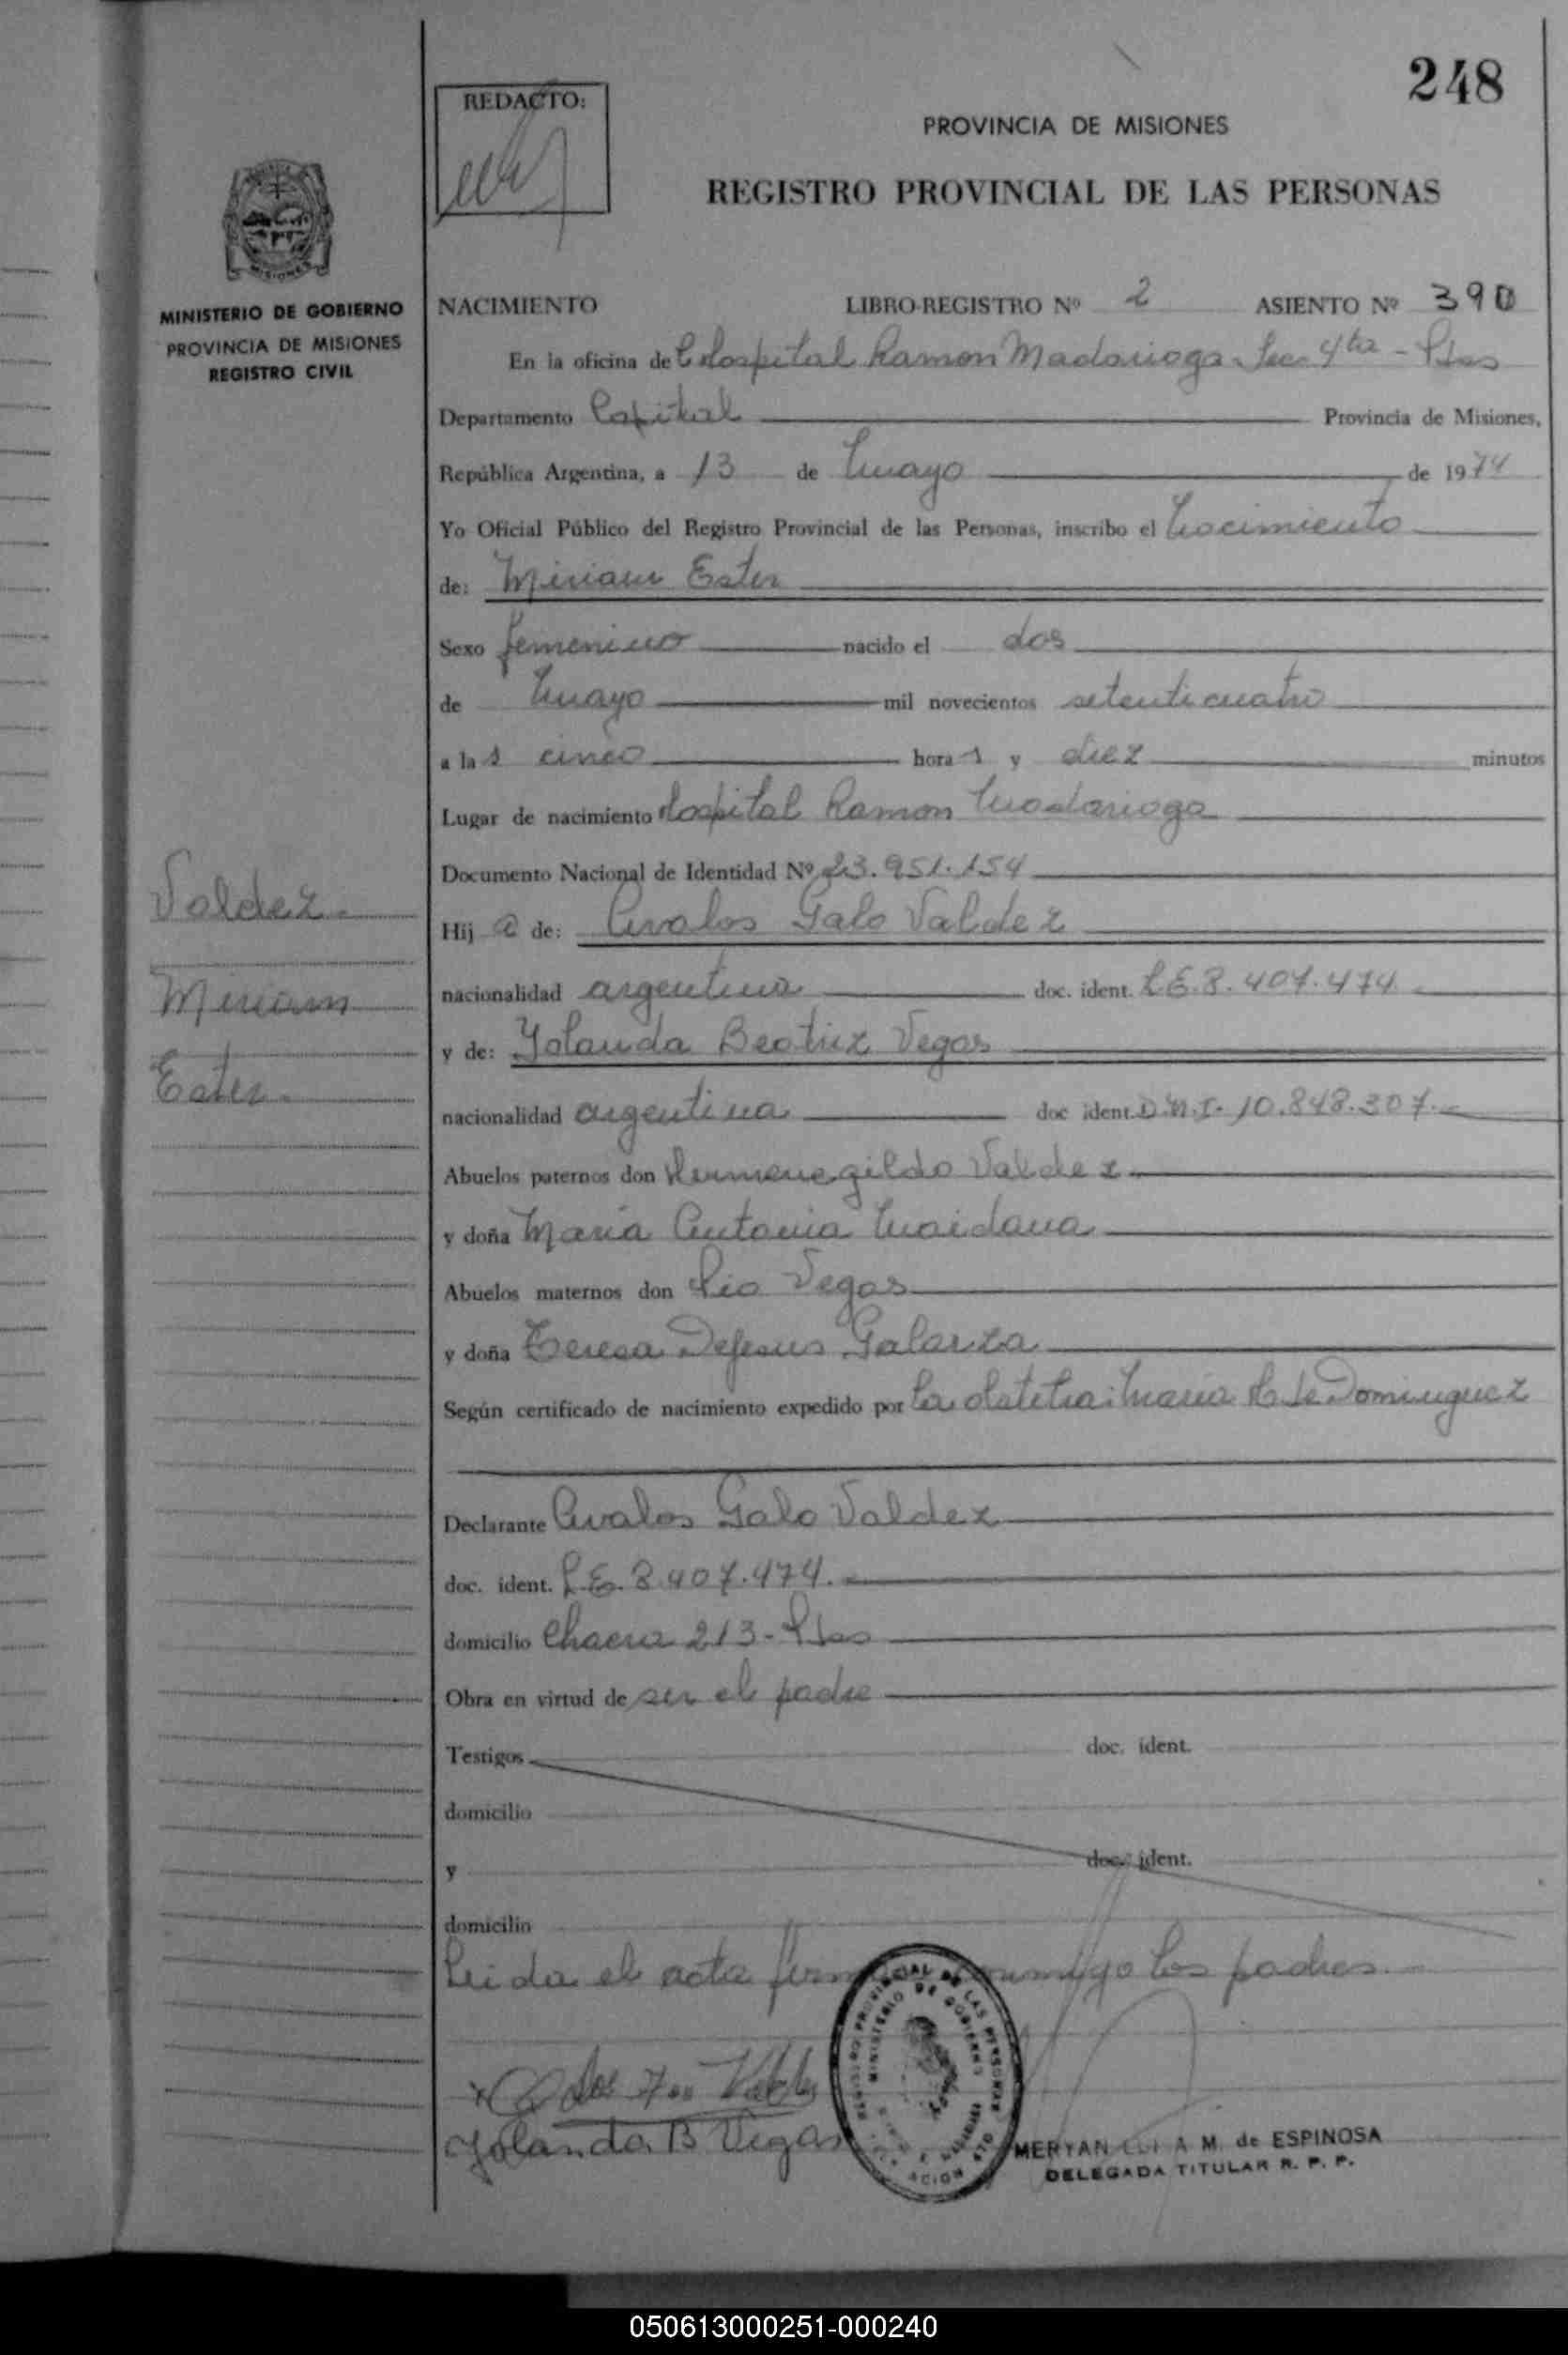 248
REDACTO:
PROVINCIA DE MISIONES
REGISTRO PROVINCIAL DE LAS PERSONAS
MINISTERIO DE GOBIERNO
PROVINCIA DE MISIONES
REGISTRO CIVIL
NACIMIENTO LIBRO-REGISTRO Nº 2 ASIENTO Nº 390
En la oficina de Hospital Ramon Madariaga - Sec 4ta - Pdas
Departamento Capital Provincia de Misiones,
República Argentina, a 13 de mayo de 1974
Yo Oficial Público del Registro Provincial de las Personas, inscribo el nacimiento
de: Miriam Ester
Sexo femenino nacido el dos
de mayo mil novecientos setenticuatro
a las cinco horas y diez minutos
Lugar de nacimiento Hospital Ramon Madariaga
Documento Nacional de Identidad Nº 23.951.154
Valdez
Miriam
Ester
Hija de: Avalos Galo Valdez
nacionalidad argentina doc. ident. L.E. 8.407.474
y de: Yolanda Beatriz Vegas
nacionalidad argentina doc ident. D.N.I. 10.848.307
Abuelos paternos don Hermenegildo Valdez
y doña Maria Antonia Maidana
Abuelos maternos don Pio Vegas
y doña Teresa DeJesus Galarza
Según certificado de nacimiento expedido por la obstetra: Maria de Dominguez
Declarante Avalos Galo Valdez
doc. ident. L.E. 8.407.474.
domicilio Chacra 213 - Pdas
Obra en virtud de ser el padre
Testigos doc. ident.
domicilio
y doc. ident.
domicilio
Leida el acta firman conmigo los padres.
Yolanda B Vegas
REGISTRO PROVINCIAL DE LAS PERSONAS
MINISTERIO DE GOBIERNO
M. de ESPINOSA
DELEGADA TITULAR R. P. P.
050613000251-000240